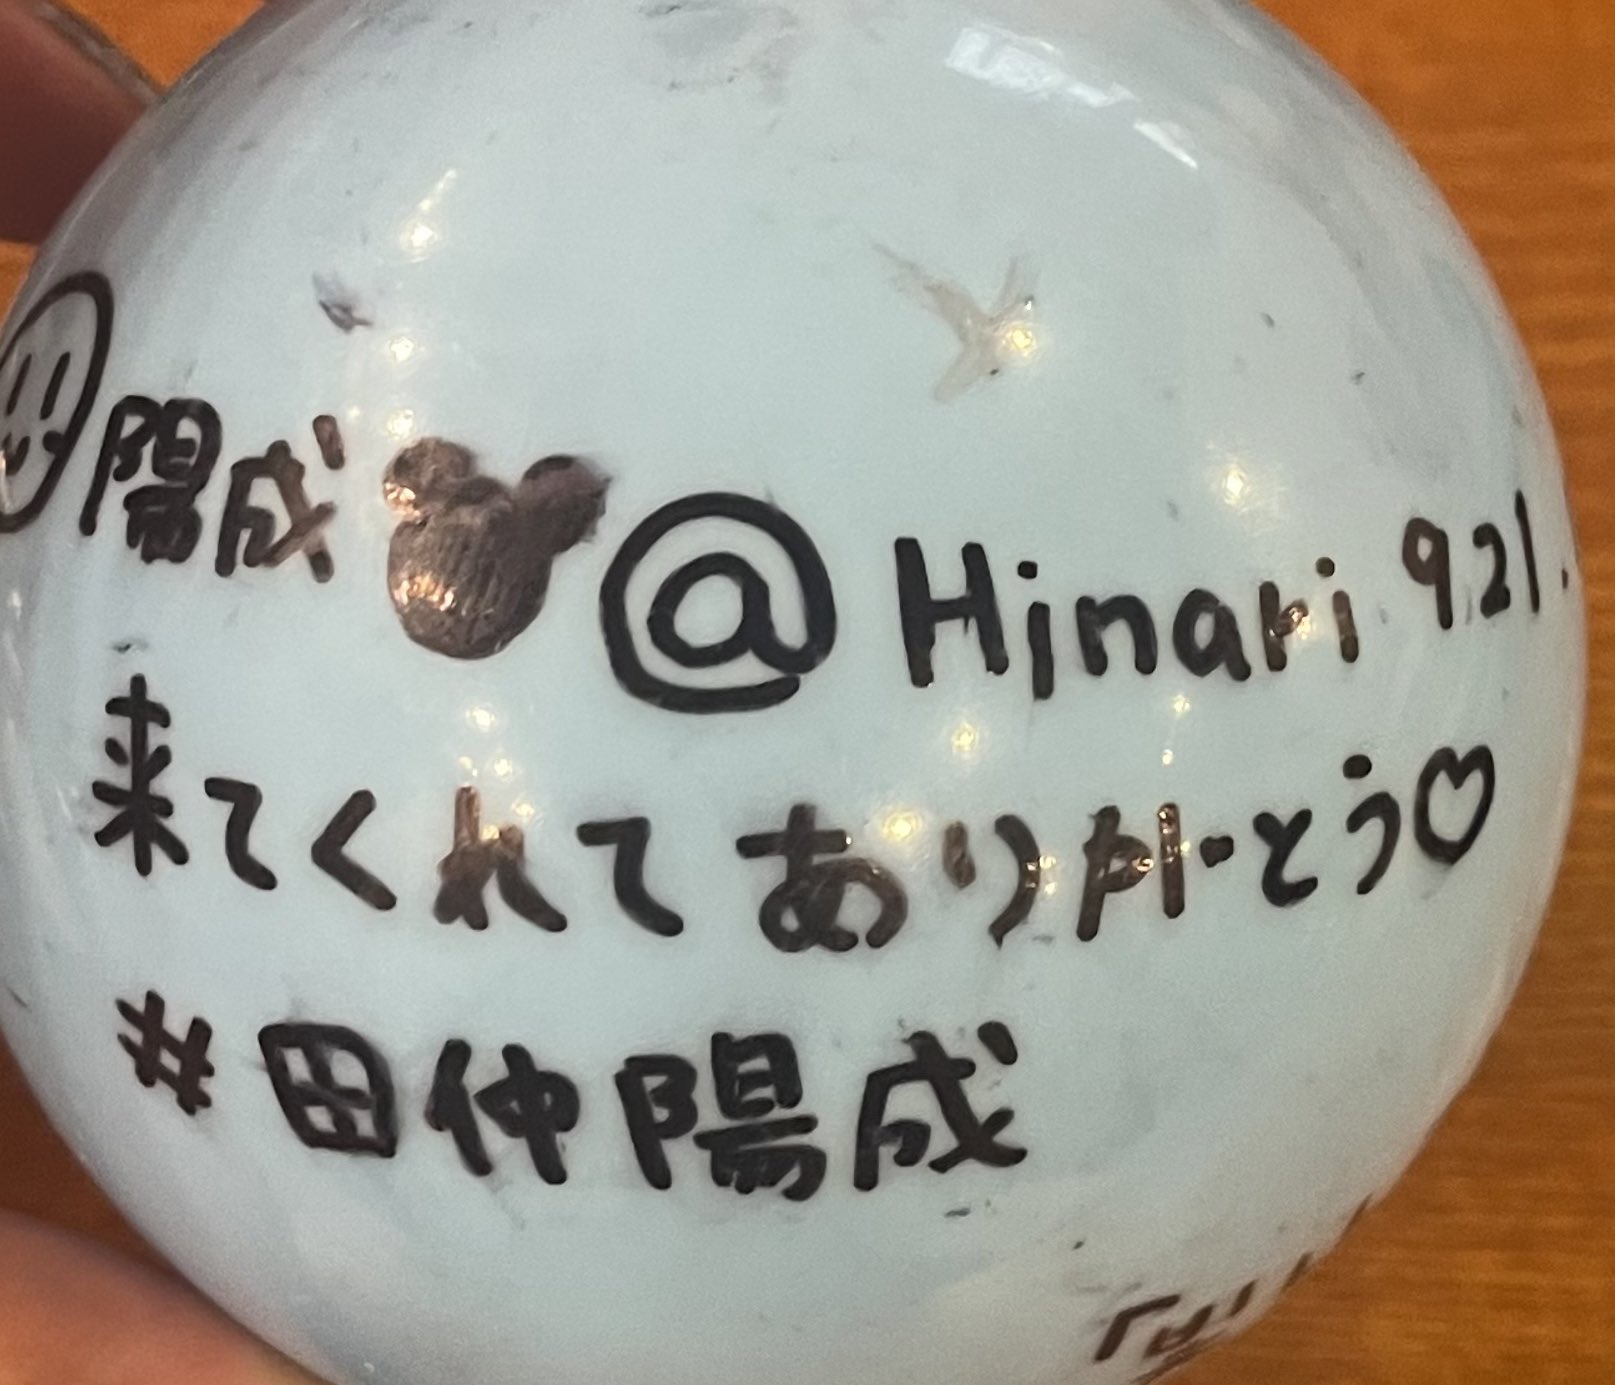 陽成 @Hinari 921.
来てくれてありがとう♡
#田仲陽成